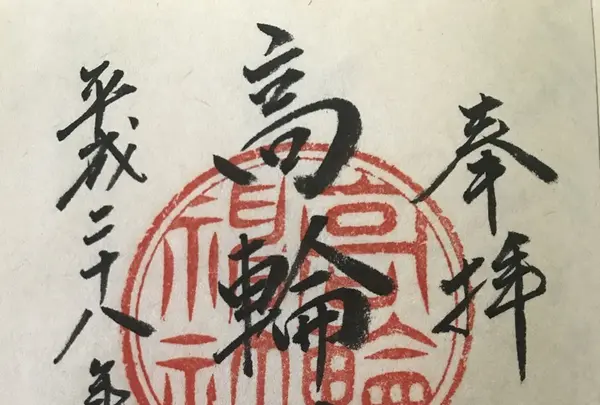 奉拝
高輪
平成二十八年